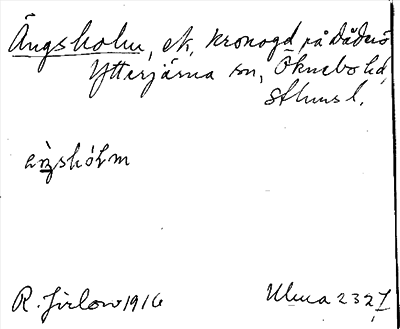 Ängsholm, ek, kronogd på Dådrö
Ytterjärna sn, Öknebo hd,
Sthms l.
äŋsholm
R. Jirlow 1916
Ulma 232 7